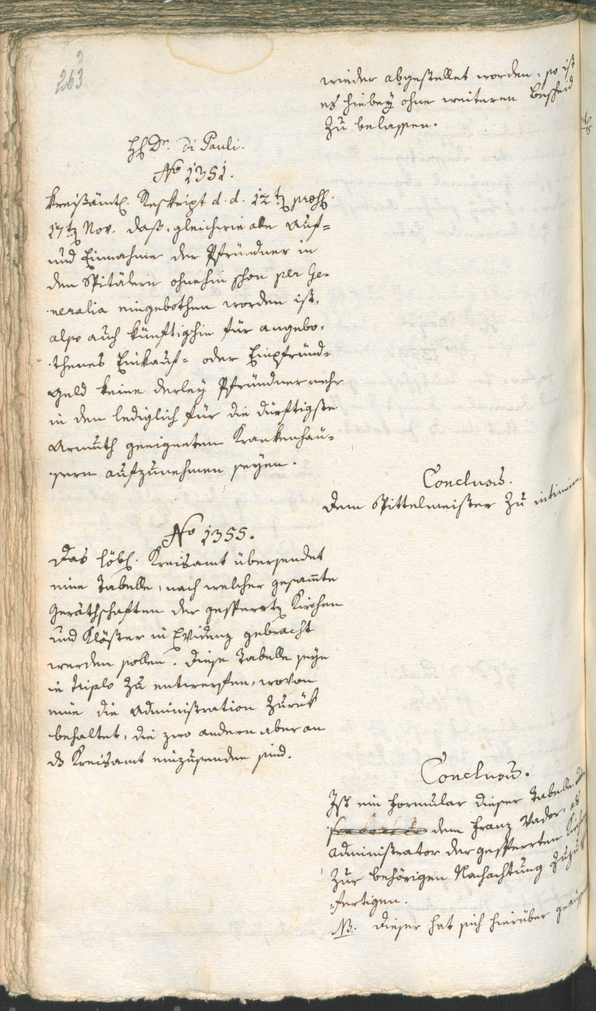 263
wieder abgestellet worden, so ist
es hiebey ohne weiteren Bescheid
zu belassen.
H. Dr. di Pauli.
No 1351.
Kreißämtl. Reskript d. d. 12ten
17ten Nov. daß, gleichwie alle Auf-
und Einnahme der Pfründner in
den Spitälern ohnehin schon per Ge-
neralia eingebothen worden ist,
also auch künftighin für angebo-
thenes Einkauf- oder Einpfründ-
geld keine derley Pfründner mehr
in den lediglich für die dürftigste
Armuth geeigneten Krankenhäu-
sern aufzunehmen seyen.
Conclusum.
dem Spittelmeister zu intimieren
No 1355.
Das löbl. Kreisamt übersendet
eine Tabelle, nach welcher gesammte
Geräthschaften der gesperrten Kirchen
und Klöster in Evidenz gebracht
werden sollen. Diese Tabelle seye
in triplo zu entwerfen, wovon
eine die Administration zurück
behaltet, die zwo andern aber an
ds Kreisamt einzusenden sind.
Conclusum.
Ist ein Formular dieser Tabelle
dem Franz Vader, als
Administrator der gesperrten
zur behörigen Nachachtung zuzu-
fertigen.
NB. dieser hat sich hierüber